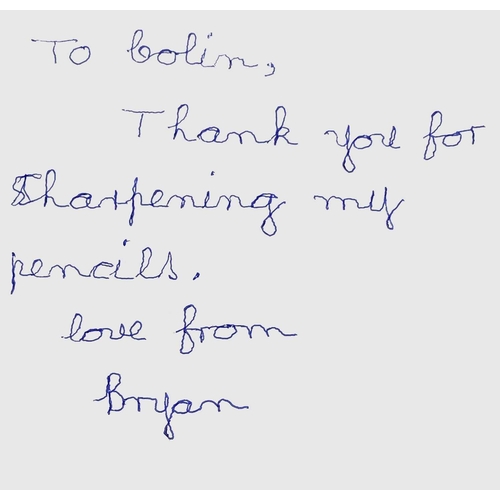 To Colin,
Thank you for
Sharpening my
pencils.
love from
Bryan